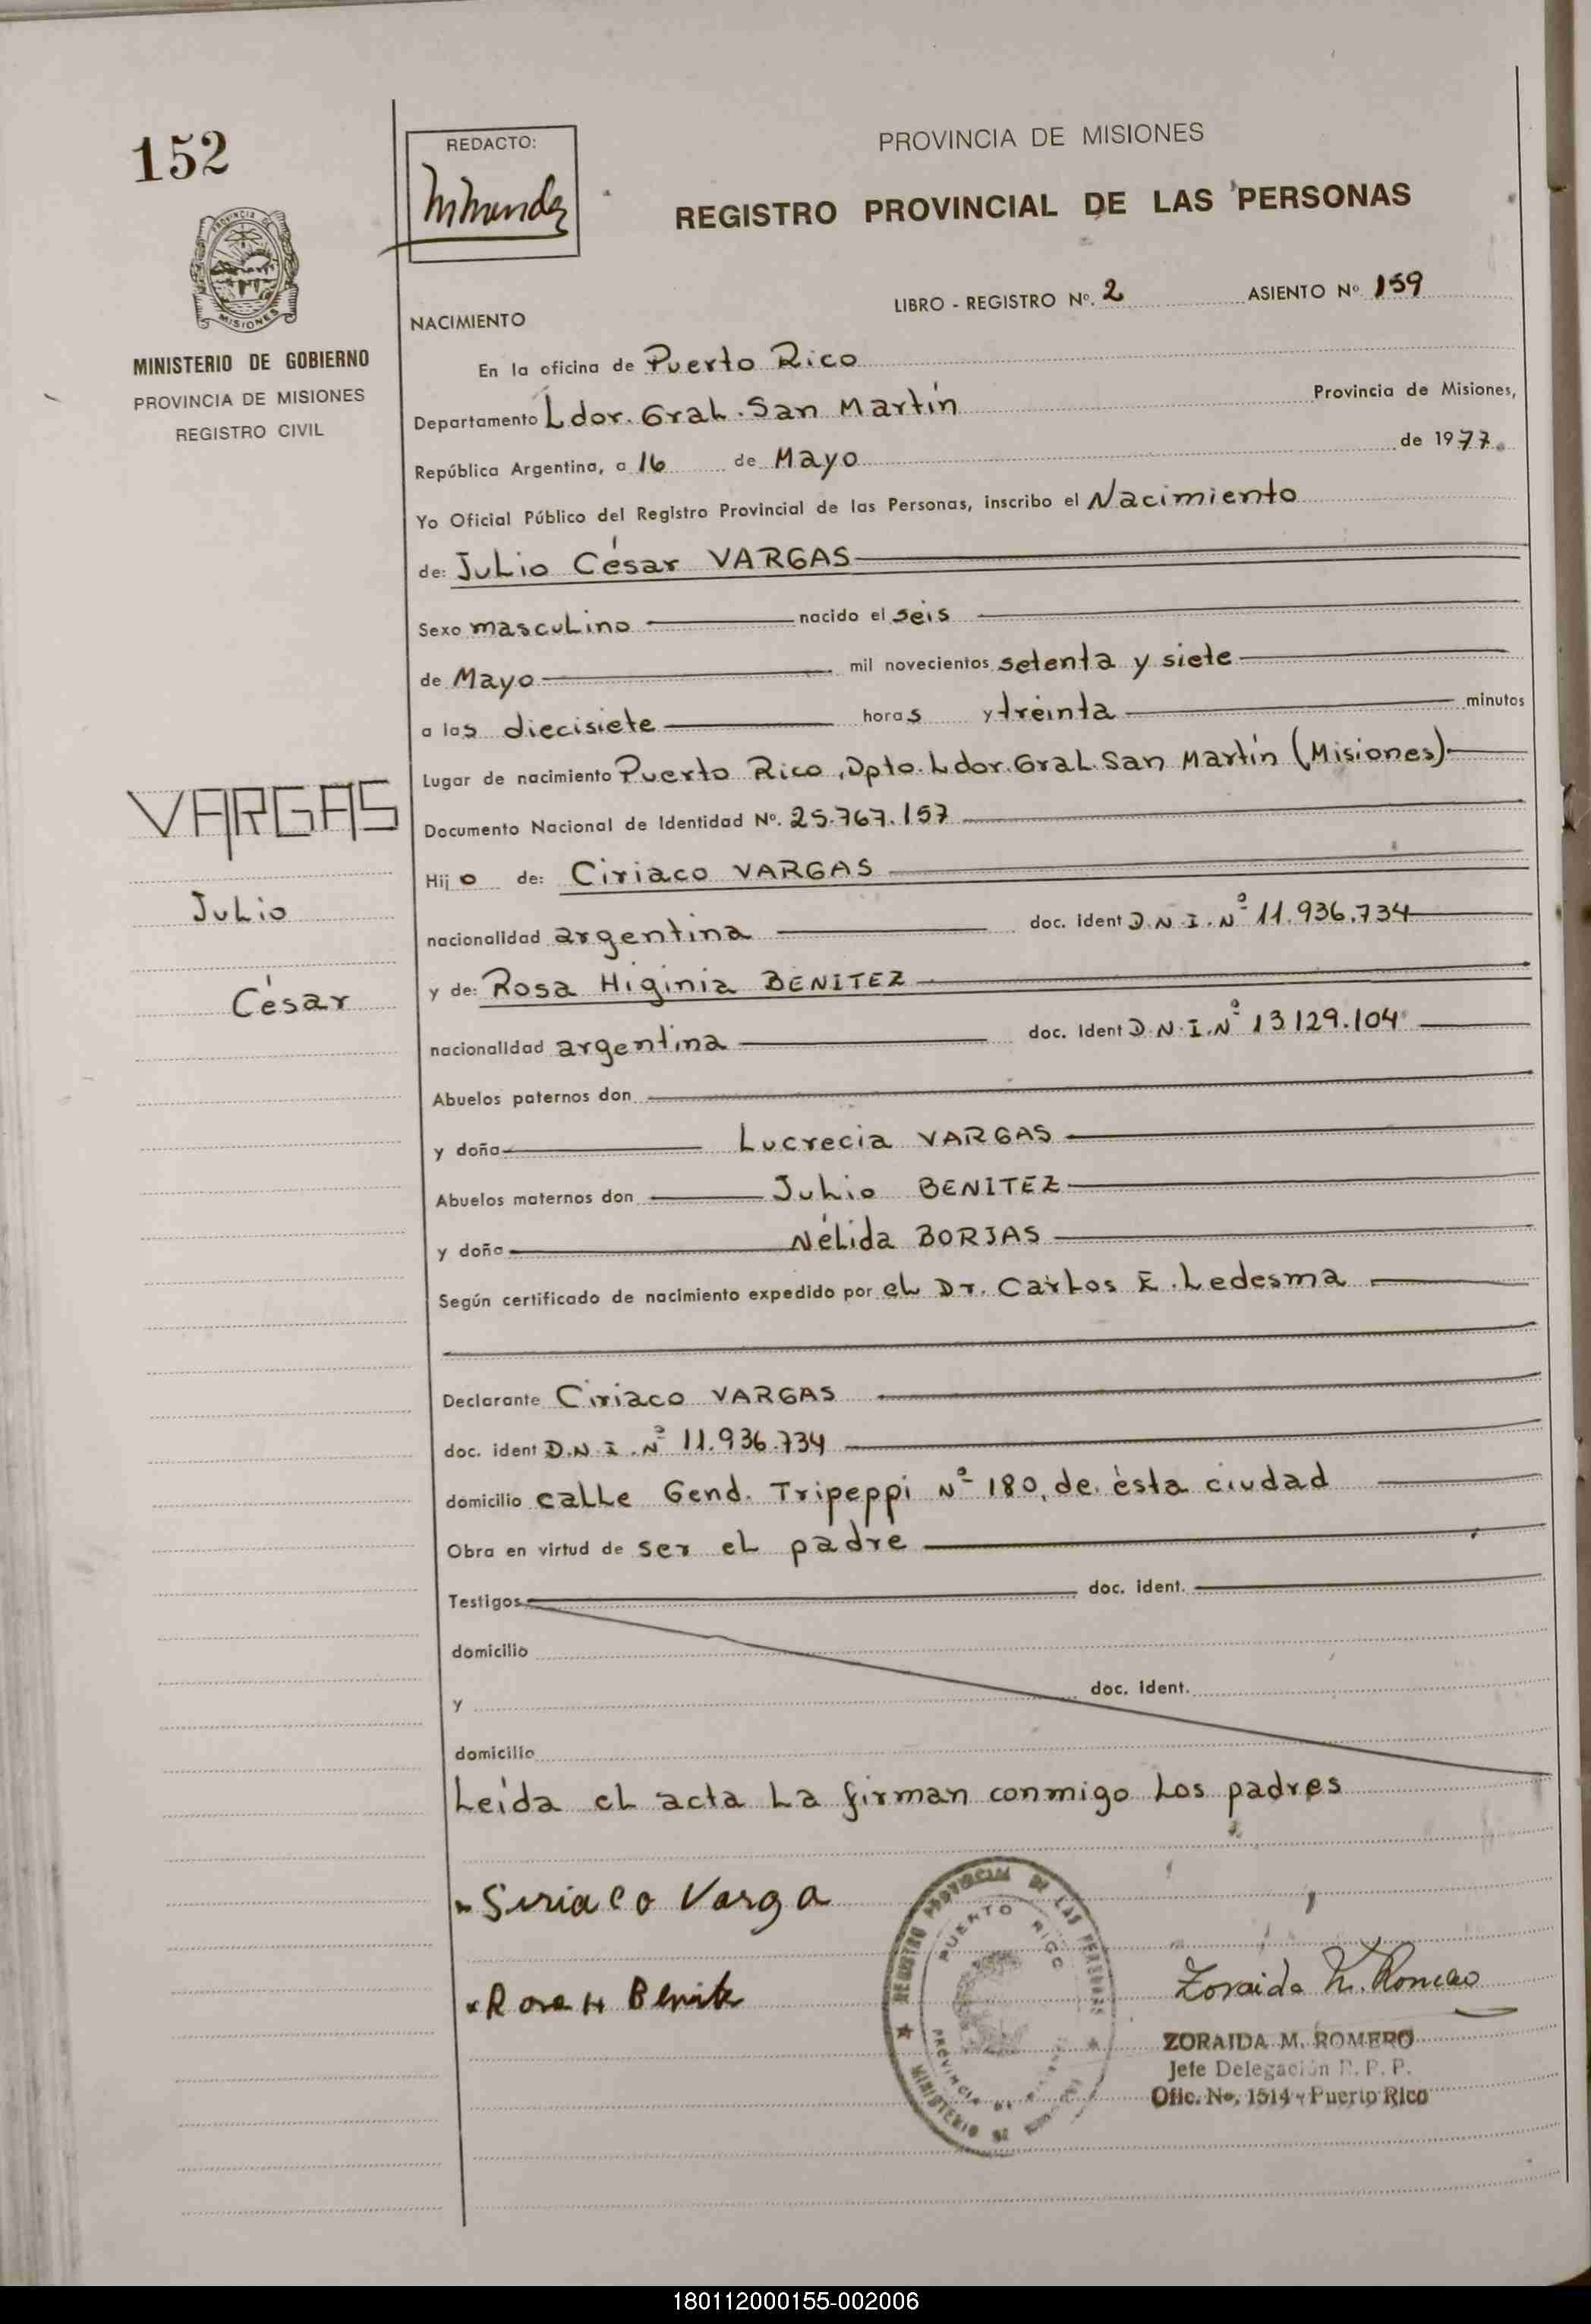 152
PROVINCIA DE
MISIONES
MINISTERIO DE GOBIERNO
PROVINCIA DE MISIONES
REGISTRO CIVIL
VARGAS
Julio
César
REDACTO:
PROVINCIA DE MISIONES
REGISTRO PROVINCIAL DE LAS PERSONAS
LIBRO - REGISTRO Nº. 2 ASIENTO Nº 159
NACIMIENTO
En la oficina de Puerto Rico
Departamento Ldor. Gral. San Martín Provincia de Misiones,
República Argentina, a 16 de Mayo de 1977.
Yo Oficial Público del Registro Provincial de las Personas, inscribo el Nacimiento
de: Julio César VARGAS
Sexo masculino nacido el seis
de Mayo mil novecientos setenta y siete
a las diecisiete horas y treinta minutos
Lugar de nacimiento Puerto Rico, Dpto. Ldor. Gral. San Martín (Misiones)
Documento Nacional de Identidad Nº. 25.767.157
Hijo de: Ciriaco VARGAS
nacionalidad argentina doc. ident D.N.I. Nº 11.936.734
y de: Rosa Higinia BENITEZ
nacionalidad argentina doc. Ident D.N.I. Nº 13129.104
Abuelos paternos don
y doña Lucrecia VARGAS
Abuelos maternos don Julio BENITEZ
y doña Nélida BORJAS
Según certificado de nacimiento expedido por el Dr. Carlos E. Ledesma
Declarante Ciriaco VARGAS
doc. ident D.N.I. Nº 11.936.734
domicilio calle Gend. Tripeppi Nº 180, de ésta ciudad
Obra en virtud de ser el padre
Testigos doc. ident.
domicilio
y doc. ident.
domicilio
Leída el acta la firman conmigo los padres
Siriaco Varga
Rosa H Benitez
REGISTRO PROVINCIAL DE LAS PERSONAS
PUERTO RICO
PROVINCIA
MINISTERIO DE
Zoraida M. Romero
ZORAIDA M. ROMERO
Jefe Delegación R. P. P.
Ofic. No. 1514 - Puerto Rico
180112000155-002006